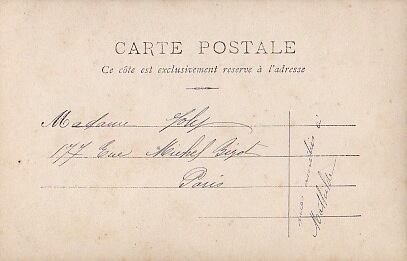 CARTE POSTALE
Ce côte est exclusivement reserve à l'adresse
Madame Joly
177 Rue Michel Bizot
Paris
Mathilde